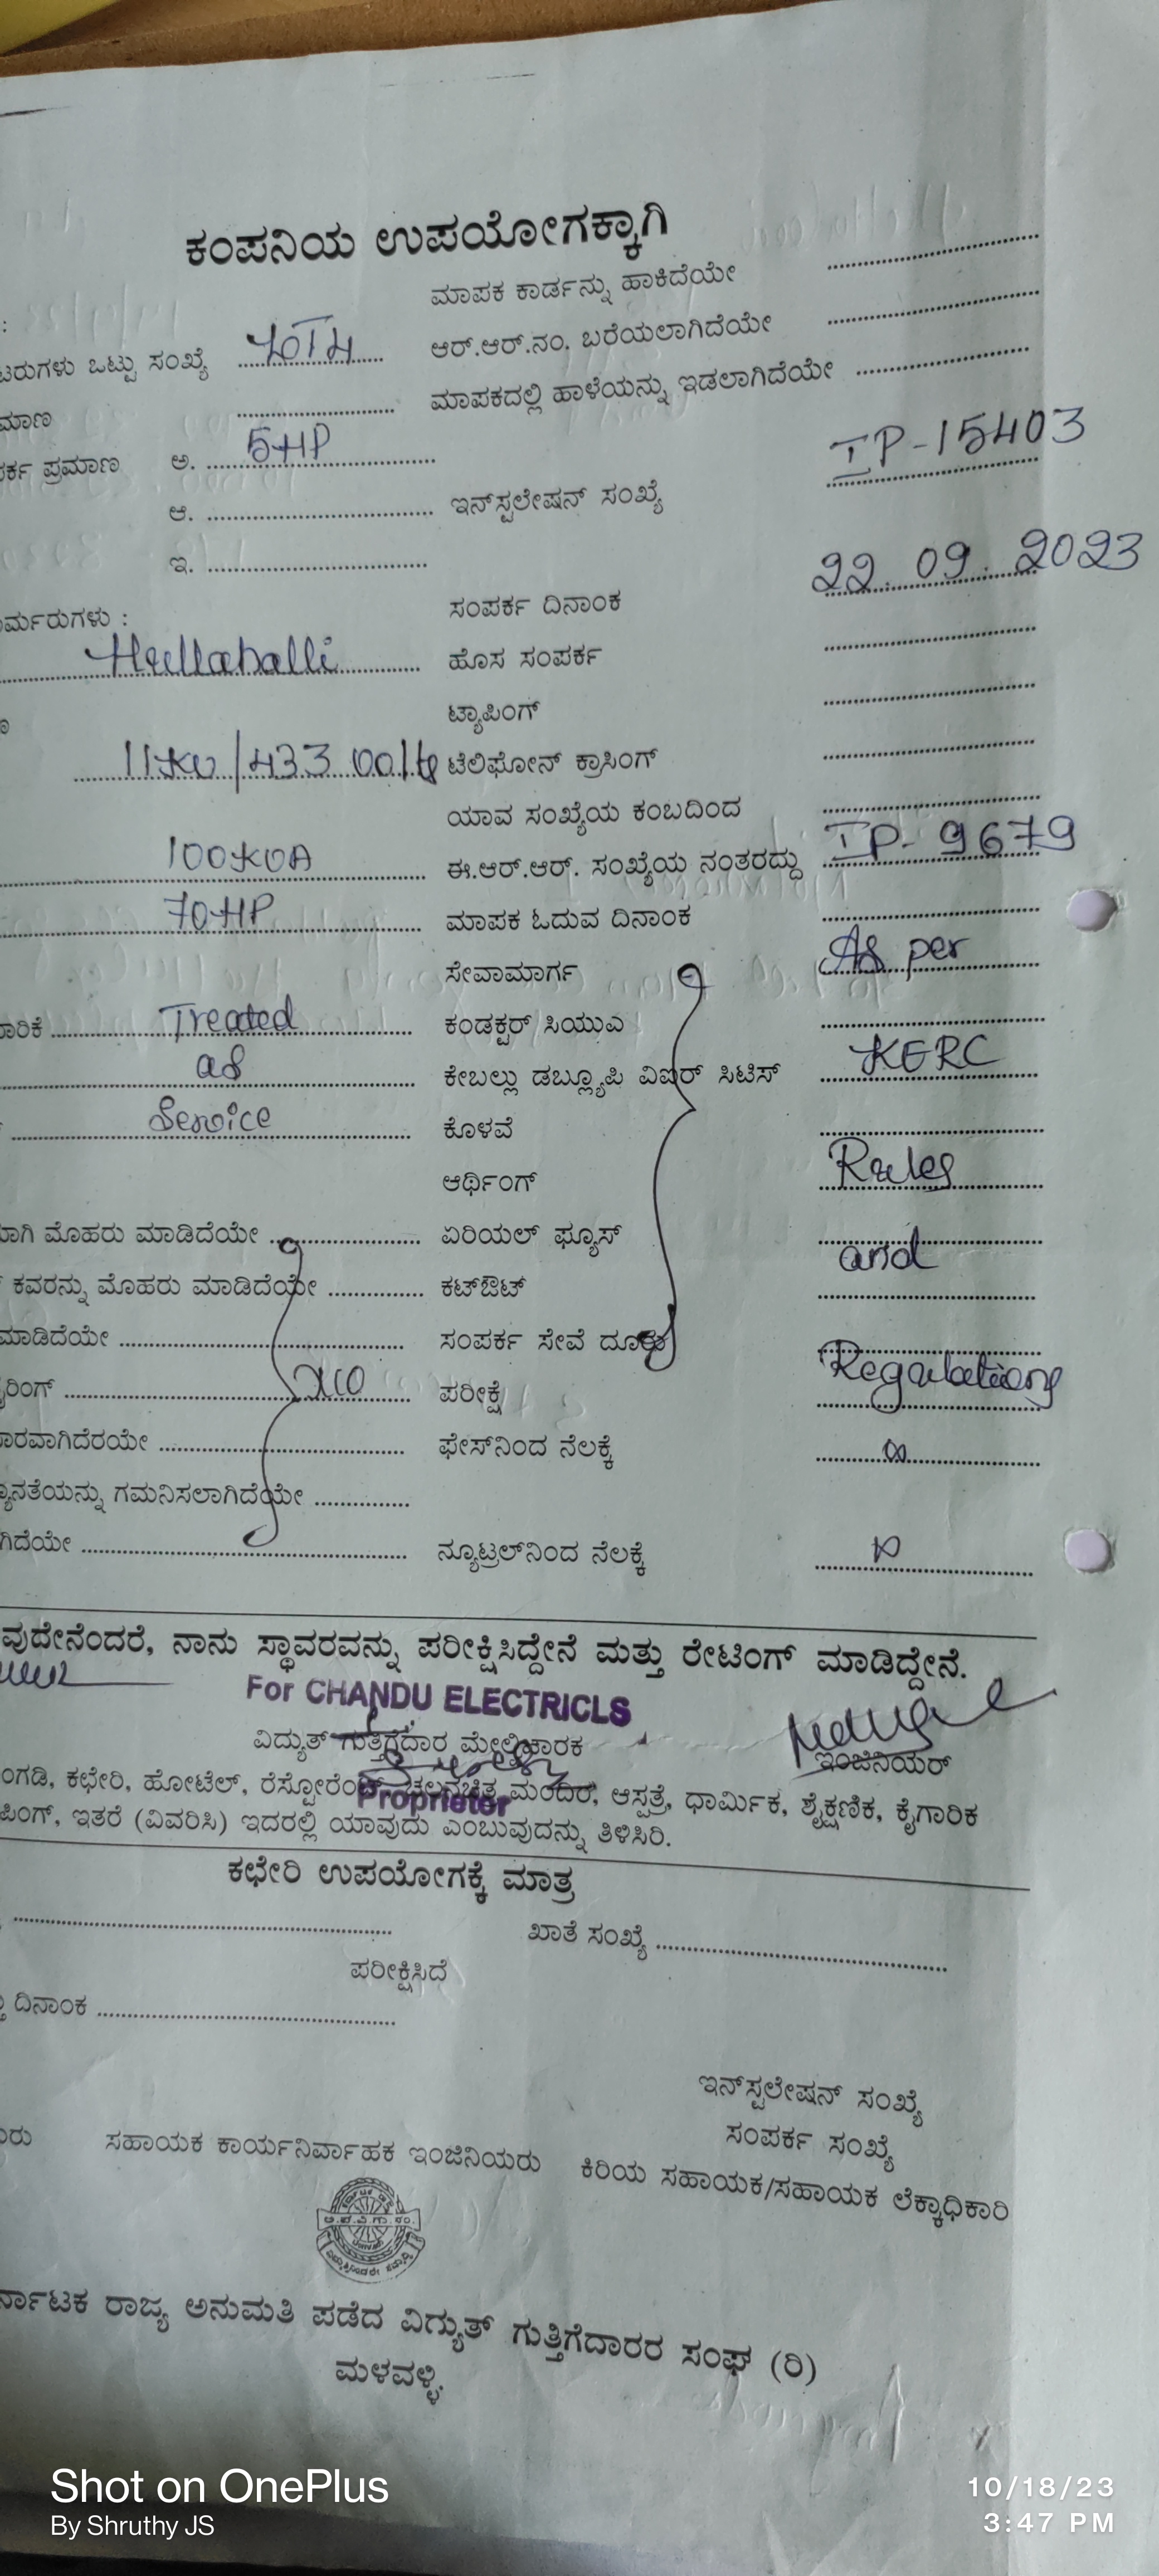 ಕಂಪನಿಯ ಉಪಯೋಗಕ್ಕಾಗಿ
ಮಾಪಕ ಕಾರ್ಡನ್ನು ಹಾಕಿದೆಯೇ ....................
ಟರುಗಳು ಒಟ್ಟು ಸಂಖ್ಯೆ ಆರ್.ಆರ್.ನಂ. ಬರೆಯಲಾಗಿದೆಯೇ ....................
ಮಾಣ .................... ಮಾಪಕದಲ್ಲಿ ಹಾಳೆಯನ್ನು ಇಡಲಾಗಿದೆಯೇ ....................
ರ್ಕ ಪ್ರಮಾಣ ಅ. 5HP
ಆ. .................... ಇನ್‌ಸ್ಟಲೇಷನ್ ಸಂಖ್ಯೆ IP-15403
ಇ. ....................
ರ್ಮರುಗಳು : ಸಂಪರ್ಕ ದಿನಾಂಕ 22.09.2023
Hullahalli ಹೊಸ ಸಂಪರ್ಕ ....................
ಟ್ಯಾಪಿಂಗ್ ....................
11KV/433 Volts ಟೆಲಿಫೋನ್ ಕ್ರಾಸಿಂಗ್ ....................
ಯಾವ ಸಂಖ್ಯೆಯ ಕಂಬದಿಂದ ....................
100KVA ಈ.ಆರ್.ಆರ್. ಸಂಖ್ಯೆಯ ನಂತರದ್ದು IP-9679
70HP ಮಾಪಕ ಓದುವ ದಿನಾಂಕ ....................
ಸೇವಾಮಾರ್ಗ As per
ಾರಿಕೆ Treated ಕಂಡಕ್ಟರ್ ಸಿಯುಎ ....................
as ಕೇಬಲ್ಲು ಡಬ್ಲ್ಯೂಪಿ ವಿಐರ್ ಸಿಟಿಸ್ KERC
Service ಕೊಳವೆ ....................
ಆರ್ಥಿಂಗ್ Rules
ಾಗಿ ಮೊಹರು ಮಾಡಿದೆಯೇ .................... ಏರಿಯಲ್ ಫ್ಯೂಸ್ and
ಕವರನ್ನು ಮೊಹರು ಮಾಡಿದೆಯೇ .................... ಕಟ್‌ಔಟ್ ....................
ಮಾಡಿದೆಯೇ .................... ಸಂಪರ್ಕ ಸೇವೆ ....................
ರಿಂಗ್ .................... ಪರೀಕ್ಷೆ Regulations
ಾರವಾಗಿದೆರಯೇ .................... ಫೇಸ್‌ನಿಂದ ನೆಲಕ್ಕೆ ∞
ನ್ಯನತೆಯನ್ನು ಗಮನಿಸಲಾಗಿದೆಯೇ ....................
ಗಿದೆಯೇ .................... ನ್ಯೂಟ್ರಲ್‌ನಿಂದ ನೆಲಕ್ಕೆ
ವುದೇನೆಂದರೆ, ನಾನು ಸ್ಥಾವರವನ್ನು ಪರೀಕ್ಷಿಸಿದ್ದೇನೆ ಮತ್ತು ರೇಟಿಂಗ್ ಮಾಡಿದ್ದೇನೆ.
For CHANDU ELECTRICLS
ವಿದ್ಯುತ್ ಗುತ್ತಿಗೆದಾರ ಮೇಲ್ವಿಚಾರಕ ಇಂಜಿನಿಯರ್
ಂಗಡಿ, ಕಛೇರಿ, ಹೋಟೆಲ್, ರೆಸ್ಟೋರೆಂಟ್, ಚಲನಚಿತ್ರ ಮಂದಿರ, ಆಸ್ಪತ್ರೆ, ಧಾರ್ಮಿಕ, ಶೈಕ್ಷಣಿಕ, ಕೈಗಾರಿಕ
Proprieter
ಪಿಂಗ್, ಇತರೆ (ವಿವರಿಸಿ) ಇದರಲ್ಲಿ ಯಾವುದು ಎಂಬುವುದನ್ನು ತಿಳಿಸಿರಿ.
ಕಛೇರಿ ಉಪಯೋಗಕ್ಕೆ ಮಾತ್ರ
.................... ಖಾತೆ ಸಂಖ್ಯೆ ....................
ಪರೀಕ್ಷಿಸಿದೆ
ದಿನಾಂಕ ....................
ಇನ್‌ಸ್ಟಲೇಷನ್ ಸಂಖ್ಯೆ
ಸಂಪರ್ಕ ಸಂಖ್ಯೆ
ರು ಸಹಾಯಕ ಕಾರ್ಯನಿರ್ವಾಹಕ ಇಂಜಿನಿಯರು ಕಿರಿಯ ಸಹಾಯಕ/ಸಹಾಯಕ ಲೆಕ್ಕಾಧಿಕಾರಿ
ರ್ನಾಟಕ ರಾಜ್ಯ ಅನುಮತಿ ಪಡೆದ ವಿಧ್ಯುತ್ ಗುತ್ತಿಗೆದಾರರ ಸಂಘ (ರಿ)
ಮಳವಳ್ಳಿ.
Shot on OnePlus
By Shruthy JS
10/18/23
3:47 PM